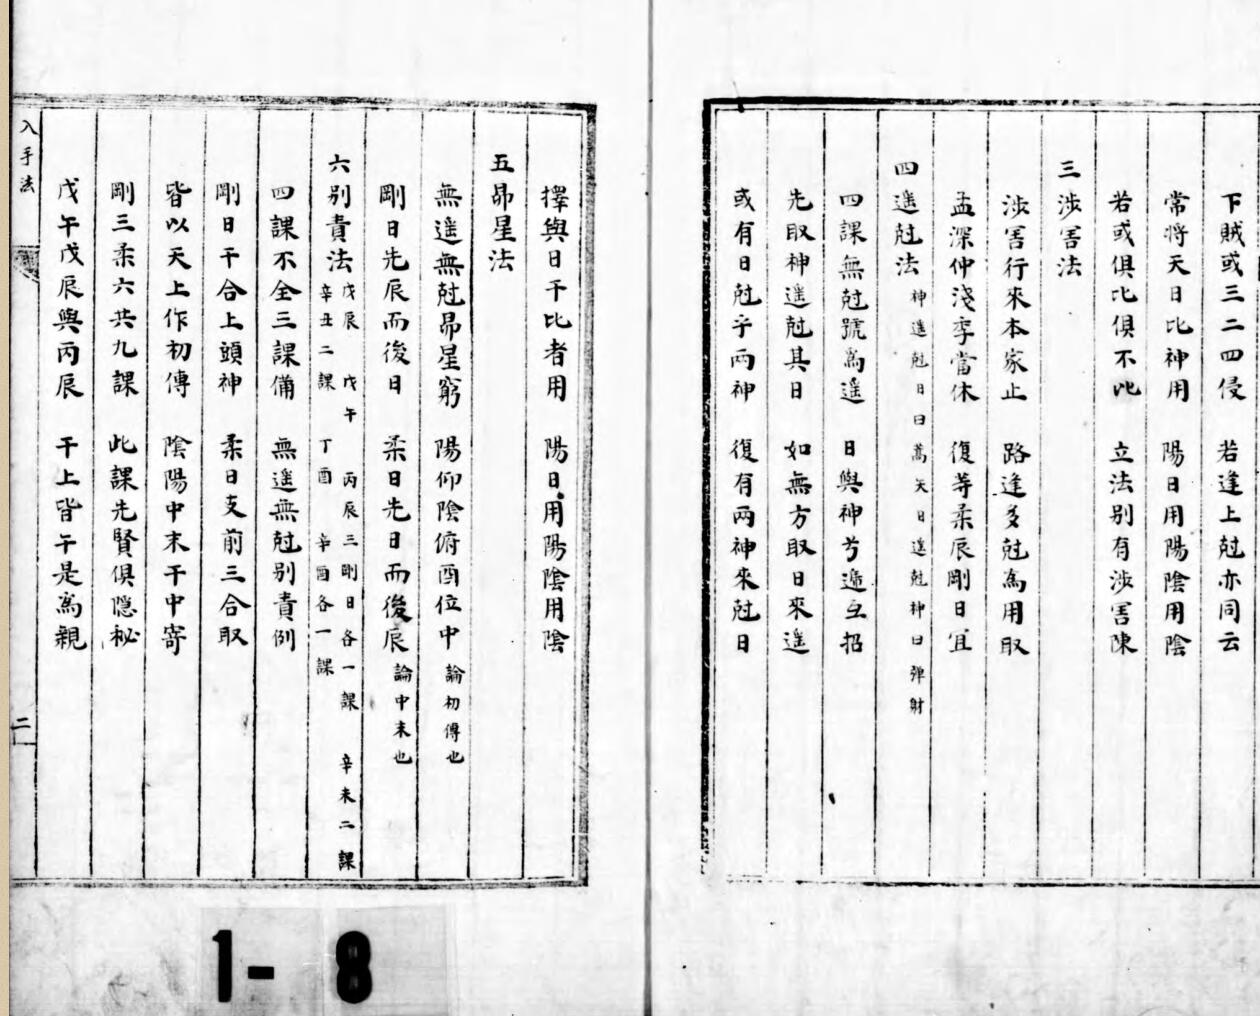 下賊或三二四侵　若逢上尅亦同云
常將天日比神用　陽日用陽陰用陰
若或俱比俱不比　立法別有涉害陳
三涉害法
涉害行來本家止　路逢多尅爲用取
孟深仲淺季當休　復等柔辰剛日宜
四遥尅法 神遥尅日曰蒿矢日遥尅神曰彈射
四課無尅號爲遥　日與神兮遞互招
先取神遥尅其日　如無方取日來遥
或有日尅乎兩神　復有兩神來尅日
擇與日干比者用　陽日用陽陰用陰
五昴星法
無遥無尅昴星窮　陽仰陰俯酉位中 論初傳也
剛日先辰而後日　柔日先日而後辰 論中末也
六別責法 戊辰　戊午　丙辰三剛日各一課　辛未二課
辛丑二課　丁酉　辛酉各一課
四課不全三課備　無遥無尅別責例
剛日干合上頭神　柔日支前三合取
皆以天上作初傳　陰陽中末干中寄
剛三柔六共九課　此課先賢俱隱秘
戊午戊辰與丙辰　干上皆午是爲親
入手法
二
1-8